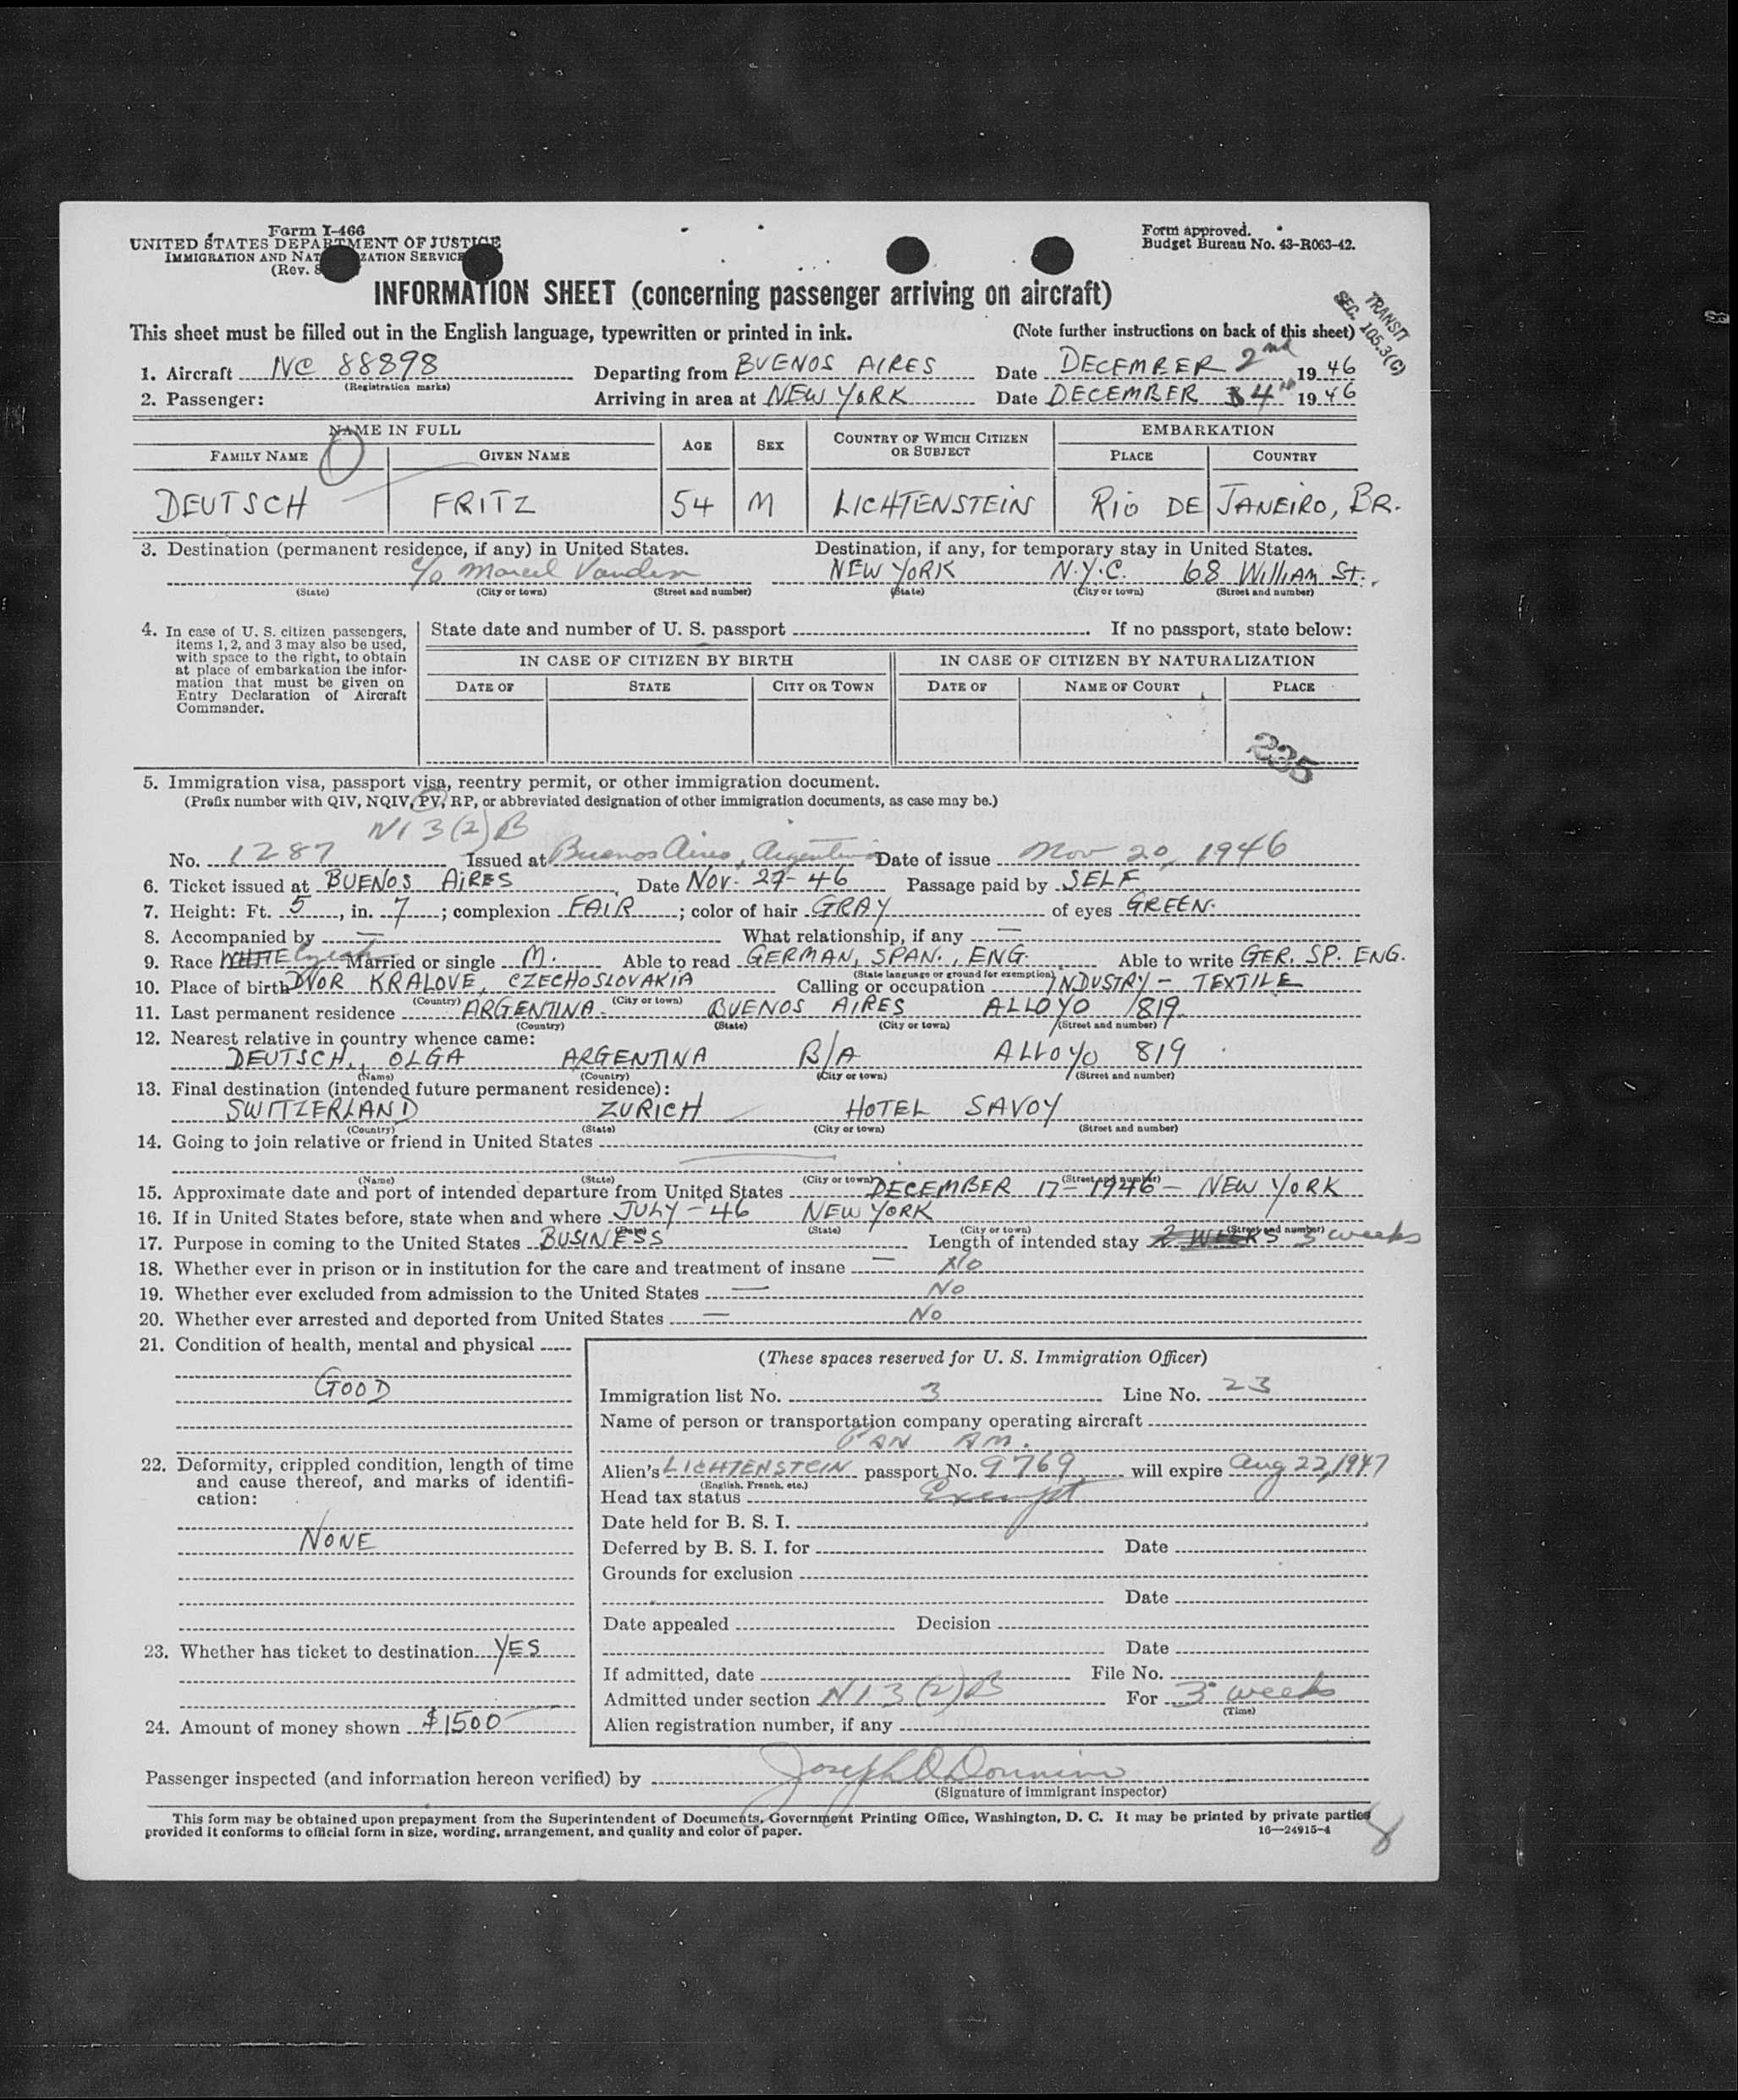 Form I-466
UNITED STATES DEPARTMENT OF JUSTICE
IMMIGRATION AND NAT ZATION SERVICE
(Rev.
Form approved.
Budget Bureau No. 43-R063-42.
INFORMATION SHEET (concerning passenger arriving on aircraft)
TRANSIT
SEC. 105.3(C)
This sheet must be filled out in the English language, typewritten or printed in ink. (Note further instructions on back of this sheet)
1. Aircraft NC 88898 Departing from BUENOS AIRES Date DECEMBER 2nd 1946
(Registration marks)
2. Passenger: Arriving in area at NEW YORK Date DECEMBER 4th 1946
NAME IN FULL AGE SEX COUNTRY OF WHICH CITIZEN OR SUBJECT EMBARKATION
FAMILY NAME GIVEN NAME PLACE COUNTRY
DEUTSCH FRITZ 54 M LICHTENSTEIN RIO DE JANEIRO, BR.
3. Destination (permanent residence, if any) in United States. Destination, if any, for temporary stay in United States.
c/o Marcel NEW YORK N.Y.C. 68 WILLIAM ST.
(State) (City or town) (Street and number) (State) (City or town) (Street and number)
4. In case of U. S. citizen passengers, items 1, 2, and 3 may also be used, with space to the right, to obtain at place of embarkation the information that must be given on Entry Declaration of Aircraft Commander.
State date and number of U. S. passport If no passport, state below:
IN CASE OF CITIZEN BY BIRTH IN CASE OF CITIZEN BY NATURALIZATION
DATE OF STATE CITY OR TOWN DATE OF NAME OF COURT PLACE
235
5. Immigration visa, passport visa, reentry permit, or other immigration document.
(Prefix number with QIV, NQIV, PV, RP, or abbreviated designation of other immigration documents, as case may be.)
NI 3(2)B
No. 1287 Issued at Buenos Aires, Argentina Date of issue Nov 20, 1946
6. Ticket issued at BUENOS AIRES Date NOV. 27-46 Passage paid by SELF
7. Height: Ft. 5, in. 7; complexion FAIR; color of hair GRAY of eyes GREEN.
8. Accompanied by — What relationship, if any —
9. Race WHITE Married or single M. Able to read GERMAN, SPAN., ENG. Able to write GER. SP. ENG.
(State language or ground for exemption)
10. Place of birth DVOR KRALOVE, CZECHOSLOVAKIA Calling or occupation INDUSTRY - TEXTILE
(Country) (City or town)
11. Last permanent residence ARGENTINA. BUENOS AIRES ALLOYO 819.
(Country) (State) (City or town) (Street and number)
12. Nearest relative in country whence came:
DEUTSCH, OLGA ARGENTINA B/A ALLOYO 819
(Name) (Country) (City or town) (Street and number)
13. Final destination (intended future permanent residence):
SWITZERLAND ZURICH HOTEL SAVOY
(Country) (State) (City or town) (Street and number)
14. Going to join relative or friend in United States
(Name) (State) (City or town) (Street and number)
15. Approximate date and port of intended departure from United States DECEMBER 17 - 1946 - NEW YORK
16. If in United States before, state when and where JULY - 46 NEW YORK
(Date) (State) (City or town) (Street and number)
17. Purpose in coming to the United States BUSINESS Length of intended stay 2 WEEKS 3 weeks
18. Whether ever in prison or in institution for the care and treatment of insane — No
19. Whether ever excluded from admission to the United States — No
20. Whether ever arrested and deported from United States — No
21. Condition of health, mental and physical
GOOD
22. Deformity, crippled condition, length of time and cause thereof, and marks of identification:
NONE
23. Whether has ticket to destination YES
24. Amount of money shown $1500
(These spaces reserved for U. S. Immigration Officer)
Immigration list No. 3 Line No. 23
Name of person or transportation company operating aircraft
PAN AM.
Alien's LICHTENSTEIN passport No. 9769 will expire Aug 22, 1947
(English, French, etc.)
Head tax status Exempt
Date held for B. S. I.
Deferred by B. S. I. for Date
Grounds for exclusion
Date
Date appealed Decision
Date
If admitted, date File No.
Admitted under section NI 3(2)B For 3 weeks
(Time)
Alien registration number, if any
Passenger inspected (and information hereon verified) by Joseph
(Signature of immigrant inspector)
This form may be obtained upon prepayment from the Superintendent of Documents, Government Printing Office, Washington, D. C. It may be printed by private parties
provided it conforms to official form in size, wording, arrangement, and quality and color of paper. 16—24915-4
8